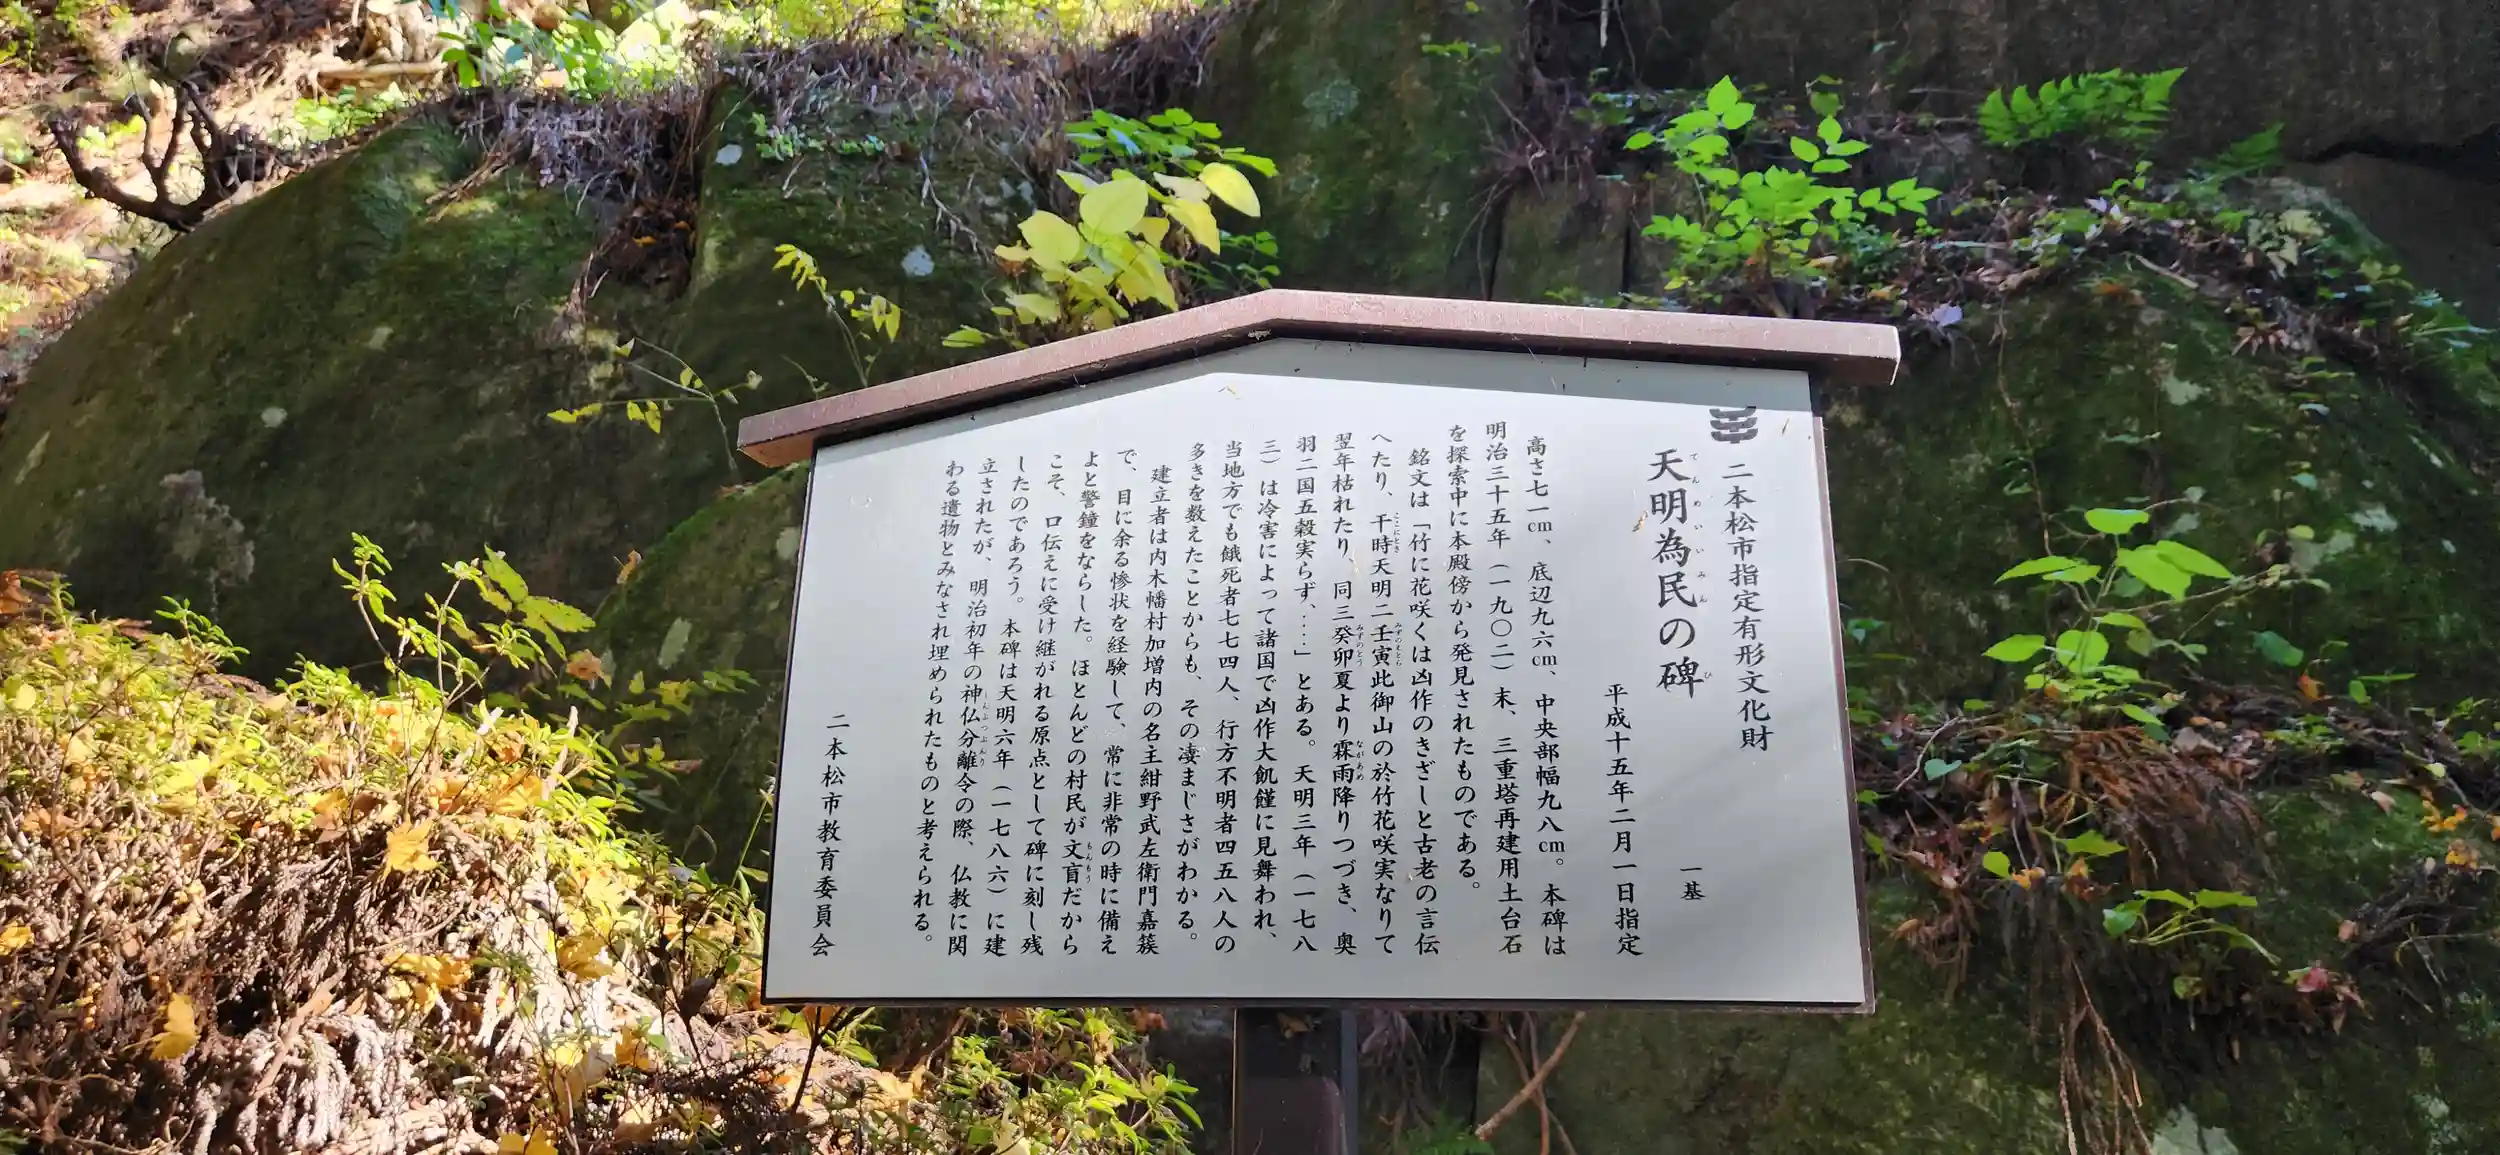 二本松市指定有形文化財
天明為民の碑
てんめいいみん ひ
一基
平成十五年二月一日指定
高さ七一cm、底辺九六cm、中央部幅九八cm。本碑は
明治三十五年（一九〇二）末、三重塔再建用土台石
を探索中に本殿傍から発見されたものである。
銘文は「竹に花咲くは凶作のきざしと古老の言伝
へたり、干時天明二壬寅此御山の於竹花咲実なりて
ここにとき みずのえとら
翌年枯れたり、同三癸卯夏より霖雨降りつづき、奥
みずのとう ながあめ
羽二国五穀実らず、‥‥」とある。天明三年（一七八
三）は冷害によって諸国で凶作大飢饉に見舞われ、
当地方でも餓死者七七四人、行方不明者四五八人の
多きを数えたことからも、その凄まじさがわかる。
建立者は内木幡村加増内の名主紺野武左衛門嘉簇
で、目に余る惨状を経験して、常に非常の時に備え
よと警鐘をならした。ほとんどの村民が文盲だから
もんもう
こそ、口伝えに受け継がれる原点として碑に刻し残
したのであろう。本碑は天明六年（一七八六）に建
立されたが、明治初年の神仏分離令の際、仏教に関
しんぶつぶんり
わる遺物とみなされ埋められたものと考えられる。
二本松市教育委員会